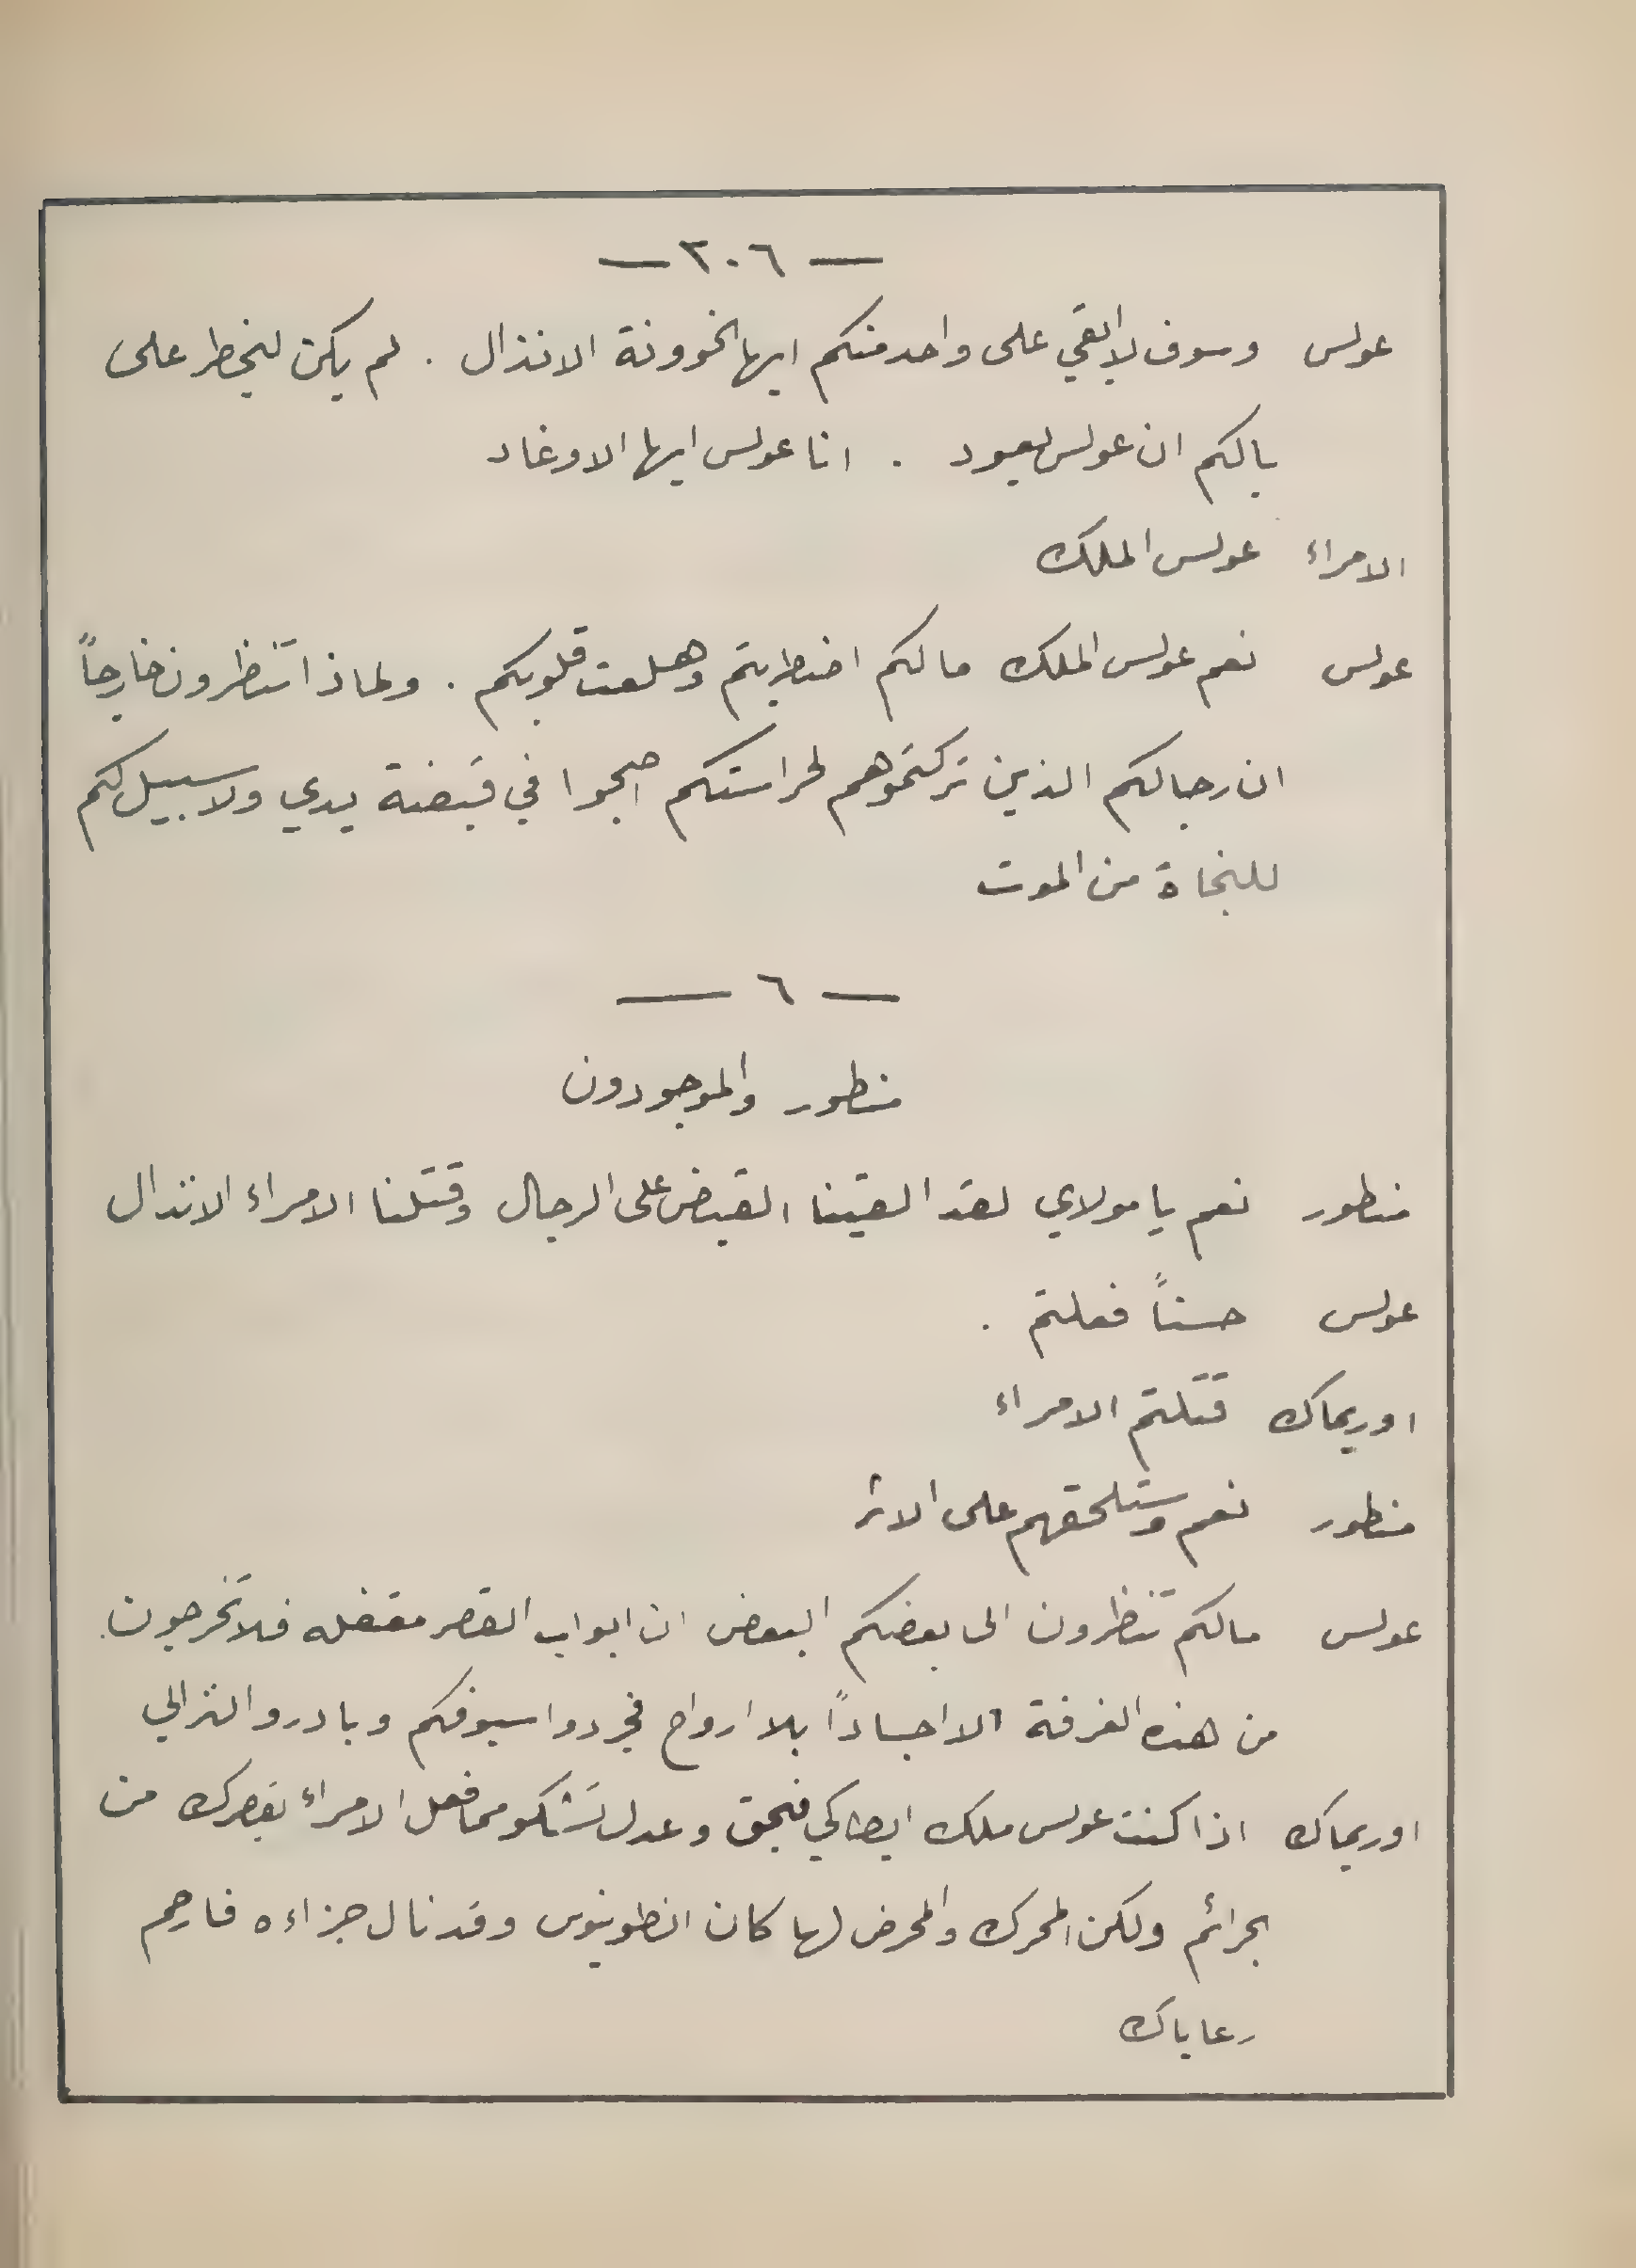 — ٢٠٦ —
عولس وسوف لا ابقي على واحد منكم ايها الخوونة الانذال . لم يكن ليخطر على
بالكم ان عولس يعود . انا عولس ايها الاوغاد
الامراء عولس الملك
عولس نعم عولس الملك مالكم اضطربتم وهلعت قلوبكم . ولماذا تنظرون خارجاً
ان رجالكم الذين تركتموهم لحراستكم اصبحوا في قبضة يدي ولا سبيل لكم
للنجاة من الموت
— ٦ —
منطور والموجودون
منطور نعم يا مولاي لقد القينا القبض على الرجال وقتلنا الامراء الانذال
عولس حسناً فعلتم .
اوريماك قتلتم الامراء
منطور نعم وستلحقهم على الاثر
عولس مالكم تنظرون الى بعضكم البعض ان ابواب القصر مقفله فلا تخرجون
من هذه الغرفة الا اجساداً بلا ارواح فجردوا سيوفكم وبادروا لنزالي
اوريماك اذا كنت عولس ملك ايطاكي فبحق وعدل تشكو مما فعل الامراء بقصرك من
جرائم ولكن المحرك والمحرض لها كان انطوينوس وقد نال جزاءه فارحم
رعاياك